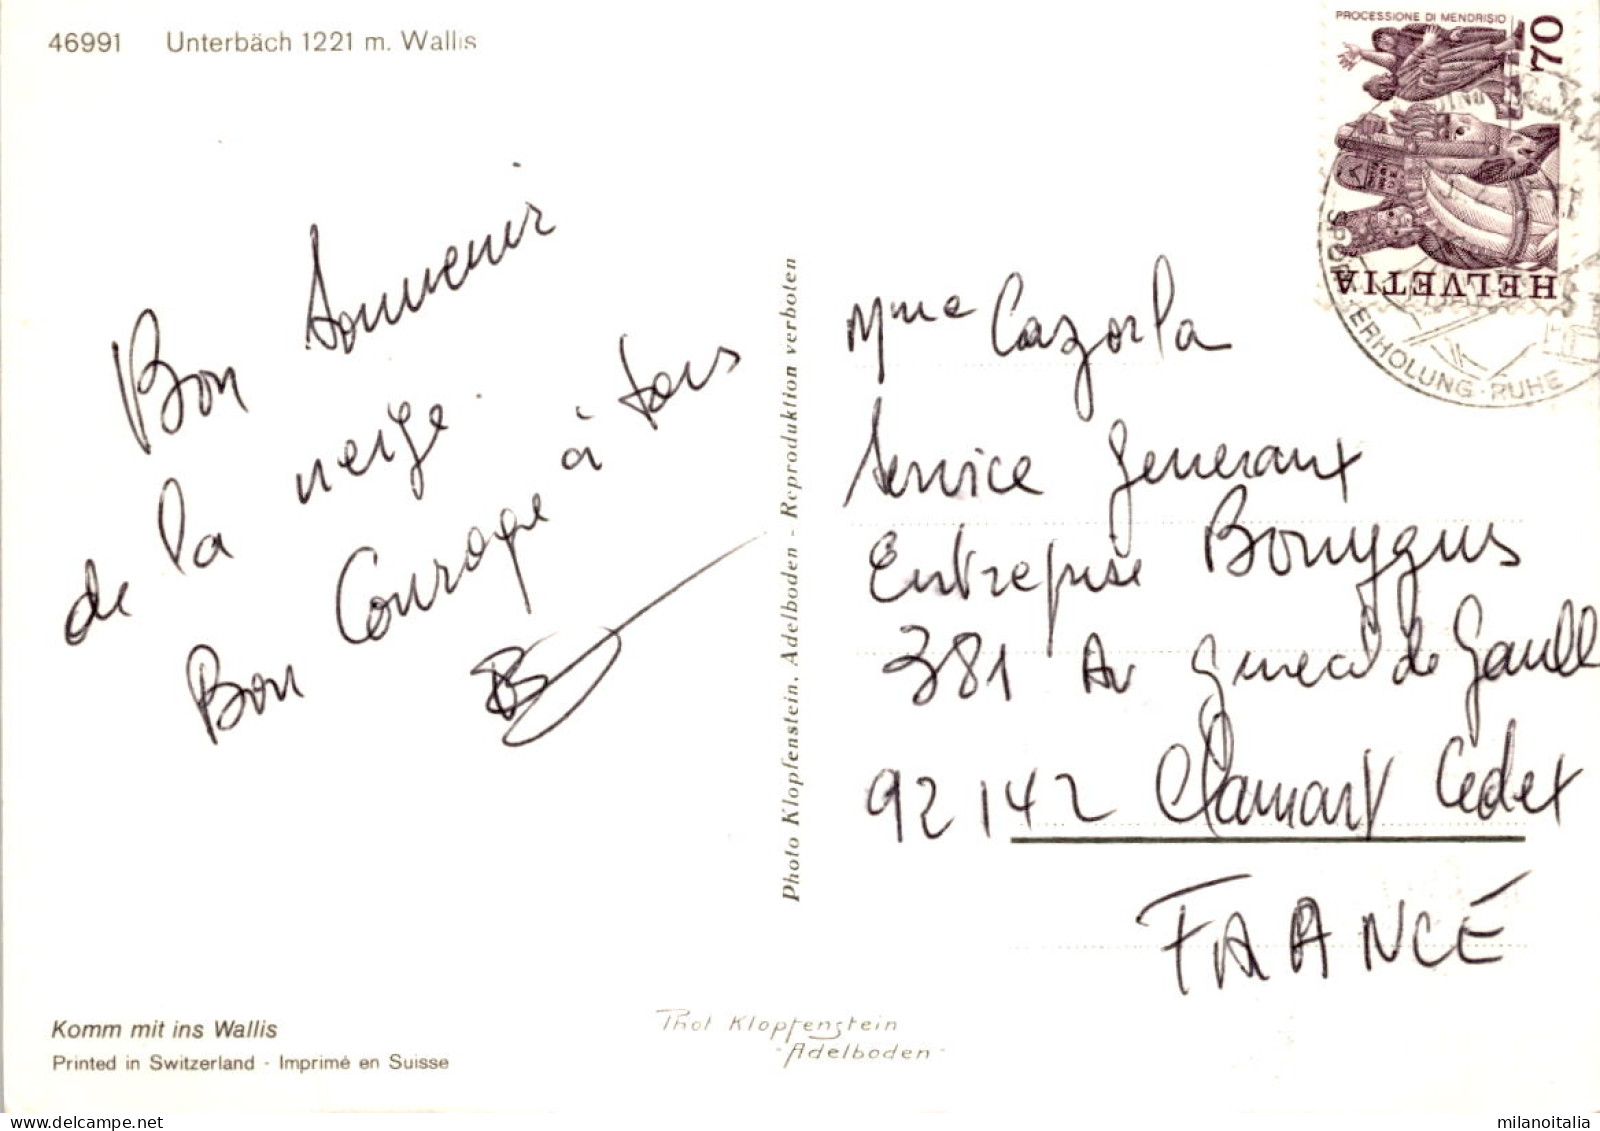 46991 Unterbäch 1221 m. Wallis
PROCESSIONE DI MENDRISIO
70
HELVETIA
SPORT · ERHOLUNG · RUHE
Bon Souvenir
de la neige.
Bon Courage à tous
Photo Klopfenstein, Adelboden - Reproduktion verboten
Mme Cazorla
Service Generaux
Entreprise Bouygues
381 Av General de Gaulle
92142 Clamart Cedex
FRANCE
Komm mit ins Wallis
Printed in Switzerland - Imprimé en Suisse
Phot Klopfenstein
-Adelboden-
milanoitalia